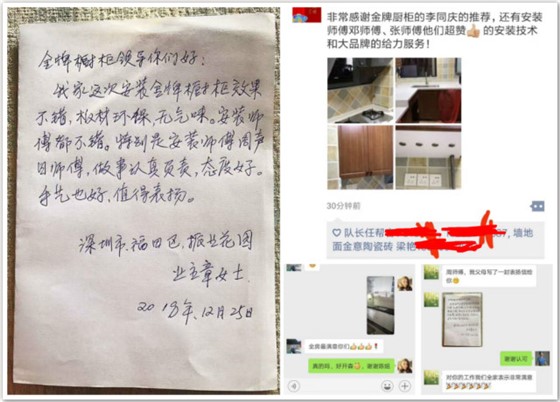 金牌橱柜领导你们好:
我家这次安装金牌橱柜效果
不错,板材环保,无气味。安装师
傅都不错。特别是安装师傅周声
日师傅,做事认真负责,态度好。
手艺也好,值得表扬。
深圳市福田区振业花园
业主章女士
2018年.12月25日
非常感谢金牌厨柜的李同庆的推荐,还有安装
师傅邓师傅、张师傅他们超赞👍的安装技术
和大品牌的给力服务!
30分钟前
队长任帮
墙地
面金意陶瓷砖 梁艳
全房最满意你们👍👍👍
真的吗,好开森,谢谢您
周师傅,我父母写了一封表扬信给
你
谢谢认可
对你的工作我们全家表示非常满意